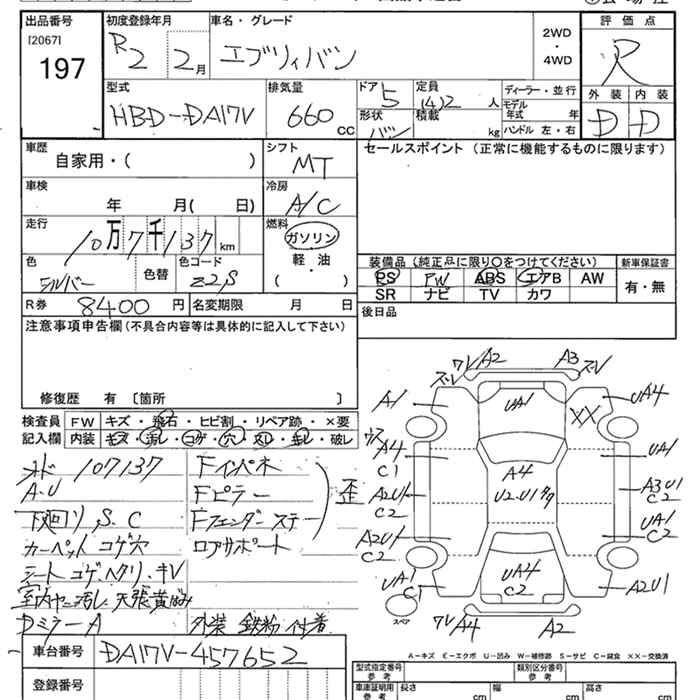 出品番号 初度登録年月 車名・グレード 評価点
[2067] R2 2月 エブリィバン 2WD・4WD R
197
型式 排気量 ドア 5 定員 (4)2人 ディーラー・並行 外装 内装
HBD-DA17V 660CC 形状 バン 積載 kg モデル年式 年 D D
ハンドル 左・右
車歴 シフト セールスポイント (正常に機能するものに限ります)
自家用・( ) MT
車検 冷房
年 月( 日) A/C
走行 燃料
10万7千137km ガソリン
色 色替 色コード 軽・油 装備品 (純正品に限り〇をつけてください) 新車保証書
シルバー Z2S ( ) PS PW ABS エアB AW 有・無
SR ナビ TV カワ
R券 8400円 名変期限 月 日 後日品
注意事項申告欄 (不具合内容等は具体的に記入して下さい)
修復歴 有 〔箇所 〕
検査員 FW キズ・飛石・ヒビ割・リペア跡・×要
記入欄 内装 キズ・汚レ・コゲ・穴・スレ・キレ・破レ
メーター 107137 Fインパネ
A.U Fピラー 歪
下廻りS.C Fフェンダーステー
カーペットコゲ穴 ロアサポート
シートコゲ、ヘタリ、キレ
室内ヤニ汚レ 天張黄ばみ
DミラーA 外装 鉄粉付着
車台番号 DA17V-457652
登録番号
ワレ A2 A3 ズレ
ズレ
A1 UA1 XX UA4
A4 UA1
C1 A4
A2U1 U2-U1 A3U1
C2 C2
A2U1 UA1
C2 C2
UA1 UA4 A2U1
C1 C2
スペア ワレ A4 A2
A-キズ E-エクボ U-凹み W-補修跡 S-サビ C-腐食 XX-交換済
型式指定番号 参考 類別区分番号 参考
車庫証明用 参考 長さ cm 幅 cm 高さ cm